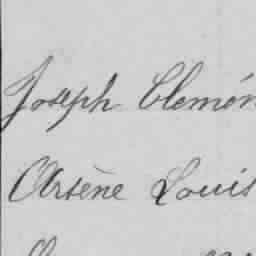 Joseph Clémen
Arsène Louis